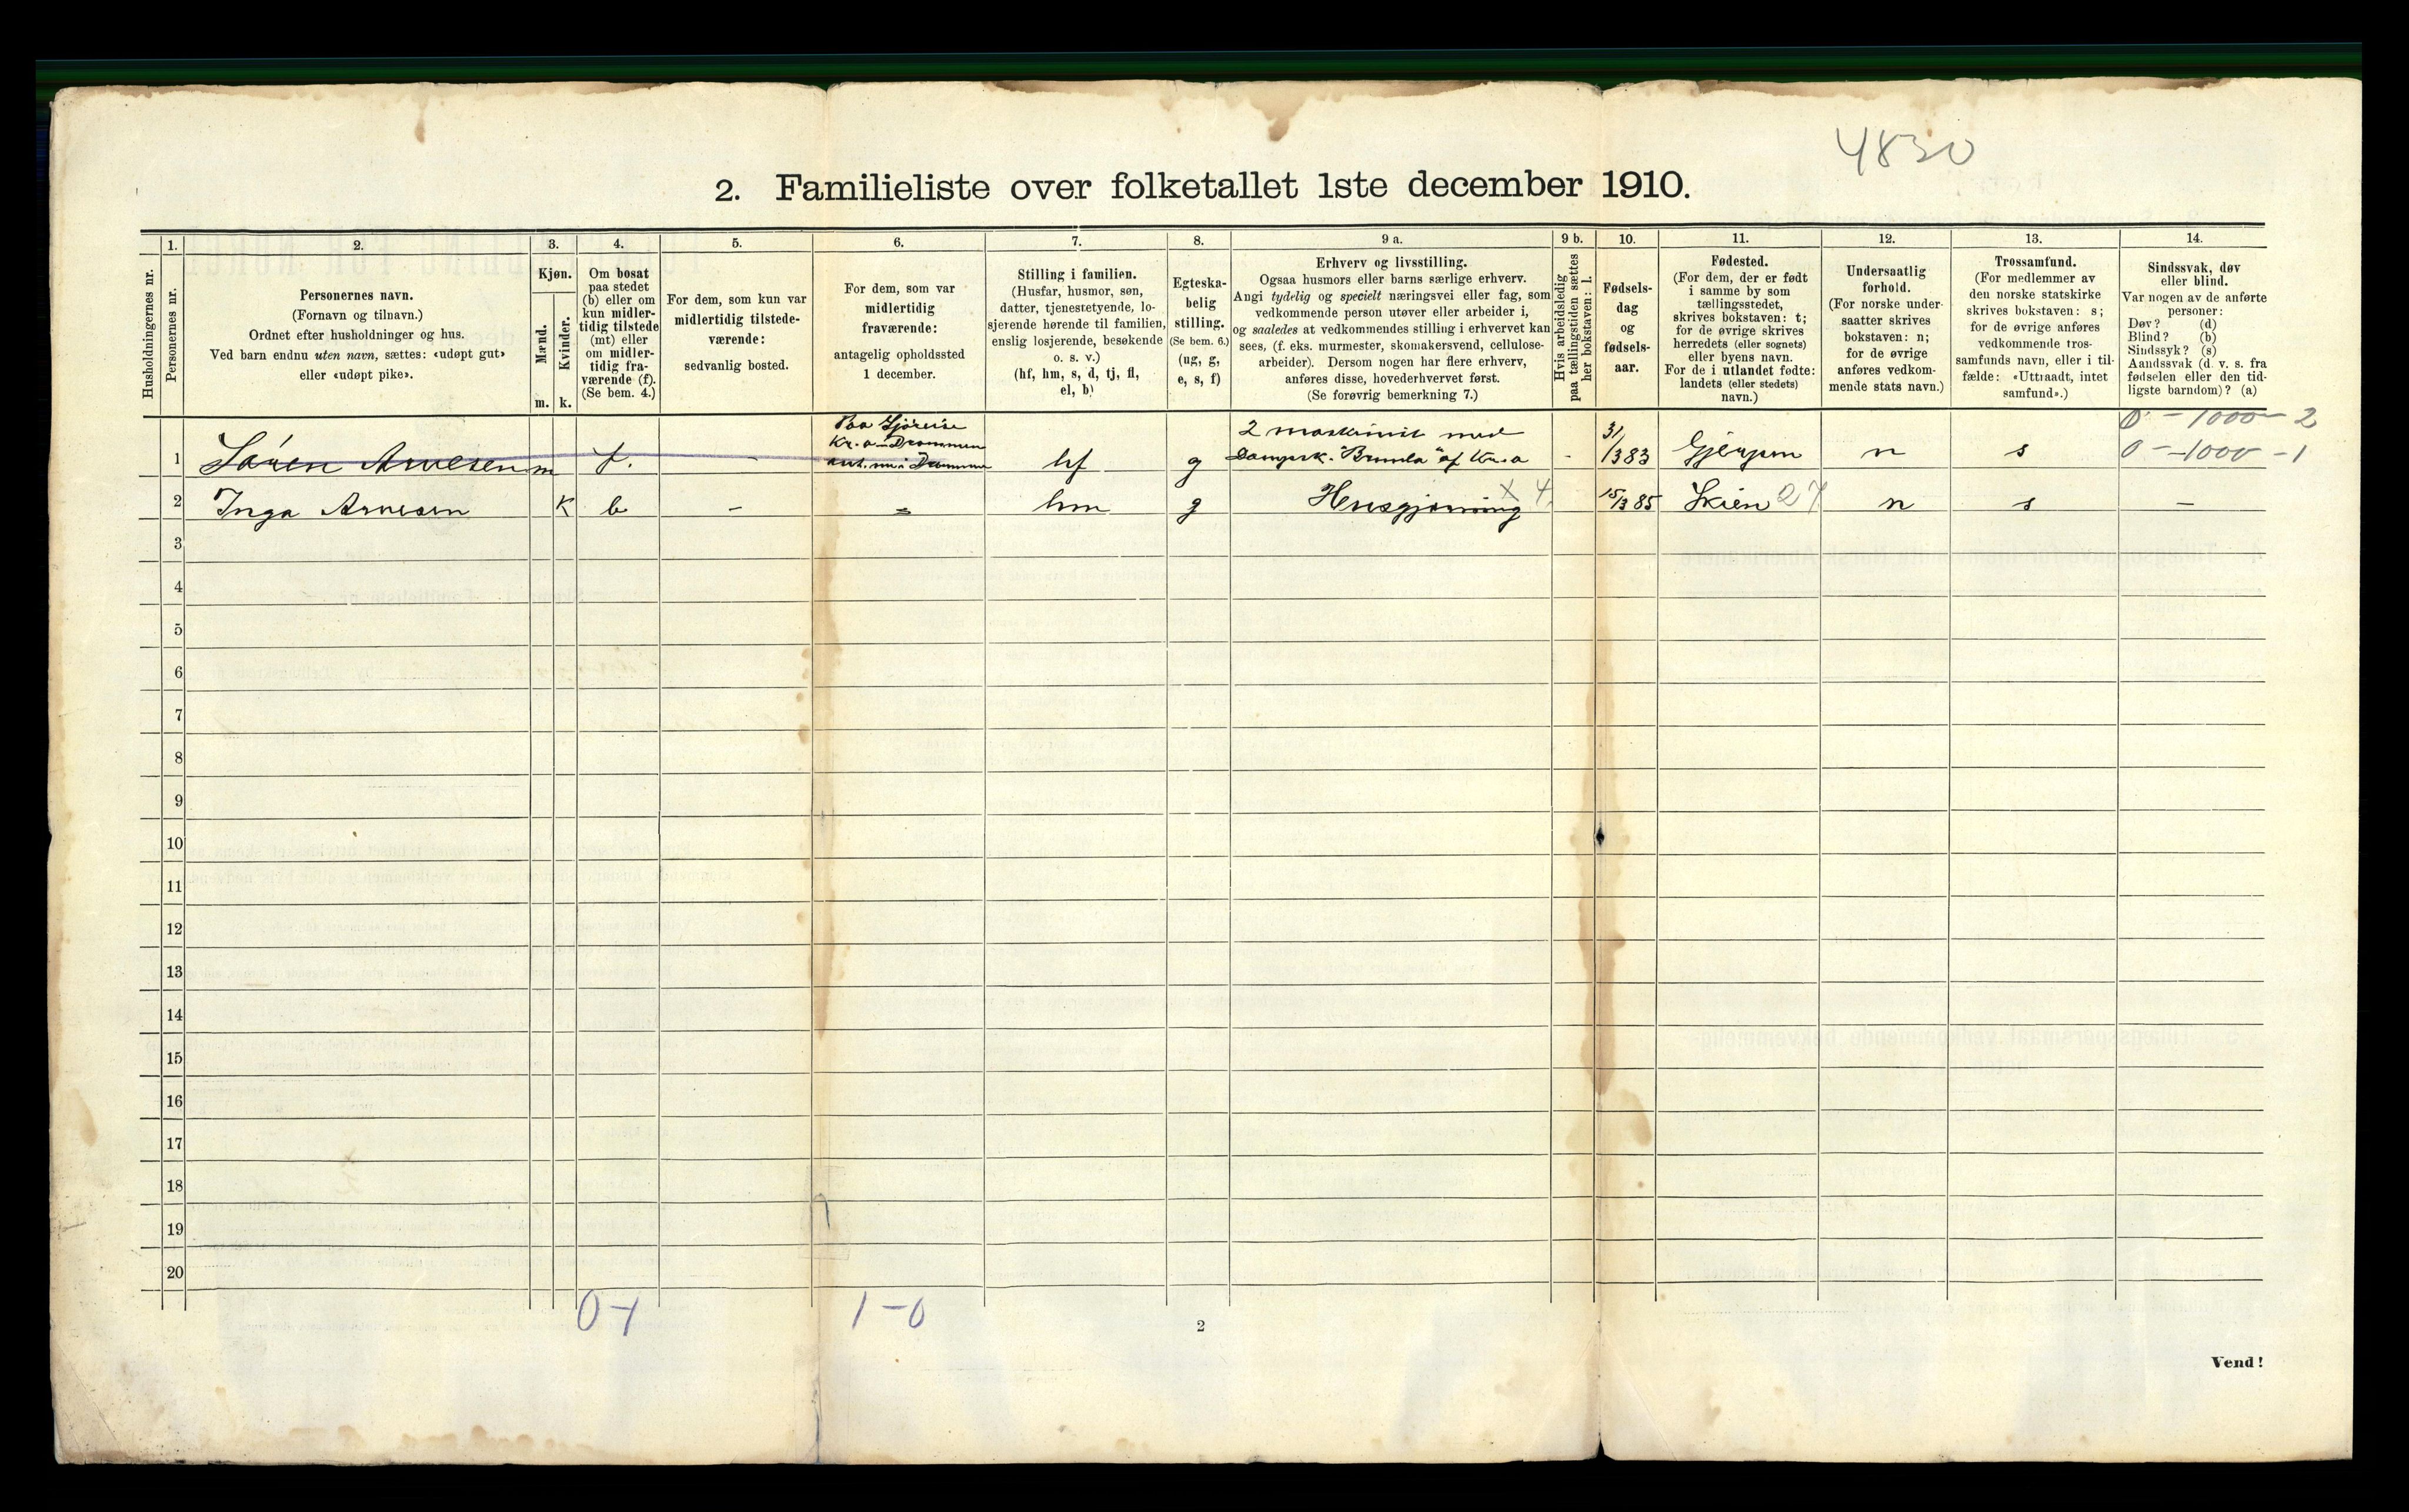 4830
2. Familieliste over folketallet 1ste december 1910.
Husholdningernes nr.
1.
Personernes nr.
2.
Personernes navn.
(Fornavn og tilnavn.)
Ordnet efter husholdninger og hus.
Ved barn endnu uten navn, sættes: «udøpt gut»
eller «udøpt pike».
3.
Kjøn.
Mænd.
Kvinder.
m. k.
4.
Om bosat
paa stedet
(b) eller om
kun midler-
tidig tilstede
(mt) eller
om midler-
tidig fra-
værende (f).
(Se bem. 4.)
5.
For dem, som kun var
midlertidig tilstede-
værende:
sedvanlig bosted.
6.
For dem, som var
midlertidig
fraværende:
antagelig opholdssted
1 december.
7.
Stilling i familien.
(Husfar, husmor, søn,
datter, tjenestetyende, lo-
sjerende hørende til familien,
enslig losjerende, besøkende
o. s. v.)
(hf, hm, s, d, tj, fl,
el, b)
8.
Egteska-
belig
stilling.
(Se bem. 6.)
(ug, g,
e, s, f)
9 a.
Erhverv og livsstilling.
Ogsaa husmors eller barns særlige erhverv.
Angi tydelig og specielt næringsvei eller fag, som
vedkommende person utøver eller arbeider i,
og saaledes at vedkommendes stilling i erhvervet kan
sees, (f. eks. murmester, skomakersvend, cellulose-
arbeider). Dersom nogen har flere erhverv,
anføres disse, hovederhvervet først.
(Se forøvrig bemerkning 7.)
9 b.
Hvis arbeidsledig
paa tællingstiden sættes
her bokstaven: l.
10.
Fødsels-
dag
og
fødsels-
aar.
11.
Fødested.
(For dem, der er født
i samme by som
tællingsstedet,
skrives bokstaven: t;
for de øvrige skrives
herredets (eller sognets)
eller byens navn.
For de i utlandet fødte:
landets (eller stedets)
navn.)
12.
Undersaatlig
forhold.
(For norske under-
saatter skrives
bokstaven: n;
for de øvrige
anføres vedkom-
mende stats navn.)
13.
Trossamfund.
(For medlemmer av
den norske statskirke
skrives bokstaven: s;
for de øvrige anføres
vedkommende tros-
samfunds navn, eller i til-
fælde: «Uttraadt, intet
samfund».)
14.
Sindssvak, døv
eller blind.
Var nogen av de anførte
personer:
Døv? (d)
Blind? (b)
Sindssyk? (s)
Aandssvak (d. v. s. fra
fødselen eller den tid-
ligste barndom)? (a)
0 - 1000 - 2
0 - 1000 - 1
1 Søren Arnesen m f. - Paa Sjöreise
Kr.a - Drammen
ank. mu i Drammen hf g 2 maskinist med
Dampsk. "Brunla" af Kr.a - 31/1383 Gjerpen n s
2 Inga Arnesen K b - - hm g Husgjerning X 4. 15/385 Skien 27 n s -
3
4
5
6
7
8
9
10
11
12
13
14
15
16
17
18
19
20
0-1
1-0
2
Vend!